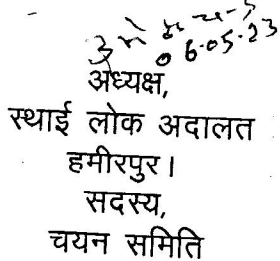 06.05.23
अध्यक्ष,
स्थाई लोक अदालत
हमीरपुर।
सदस्य,
चयन समिति